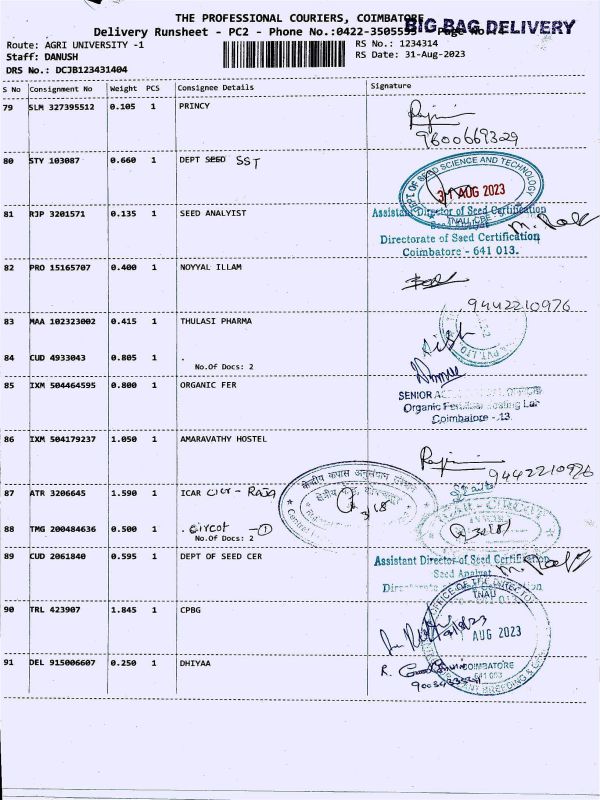 THE PROFESSIONAL COURIERS, COIMBATORE
BIG BAG DELIVERY
Delivery Runsheet - PC2 - Phone No.:0422-3505555 Page No.:4
Route: AGRI UNIVERSITY -1
RS No.: 1234314
Staff: DANUSH
RS Date: 31-Aug-2023
DRS No.: DCJB123431404
S No Consignment No Weight PCS Consignee Details Signature
79 SLM 327395512 0.105 1 PRINCY
9600669329
80 STY 103087 0.660 1 DEPT SEED SST
DEPT OF SEED SCIENCE AND TECHNOLOGY
31 AUG 2023
TNAU, CBE
81 RJP 3201571 0.135 1 SEED ANALYIST
Assistant Director of Seed Certification
Directorate of Seed Certification
Coimbatore - 641 013.
82 PRO 15165707 0.400 1 NOYYAL ILLAM
9442210976
83 MAA 102323002 0.415 1 THULASI PHARMA
PVT. LTD
84 CUD 4933043 0.805 1 .
No.Of Docs: 2
85 IXM 504464595 0.800 1 ORGANIC FER
SENIOR
Organic Fertilizer Testing Lab
Coimbatore - 13.
86 IXM 504179237 1.050 1 AMARAVATHY HOSTEL
9442210976
87 ATR 3206645 1.590 1 ICAR CICR - RAJA
केन्द्रीय कपास अनुसंधान संस्थान
88 TMG 200484636 0.500 1 . Circot - 1
No.Of Docs: 2
89 CUD 2061840 0.595 1 DEPT OF SEED CER
Assistant Director of Seed Certification
Seed Analyst
90 TRL 423907 1.845 1 CPBG
OFFICE OF THE DIRECTOR
TNAU
AUG 2023
91 DEL 915006607 0.250 1 DHIYAA
COIMBATORE
641 003
PLANT BREEDING &